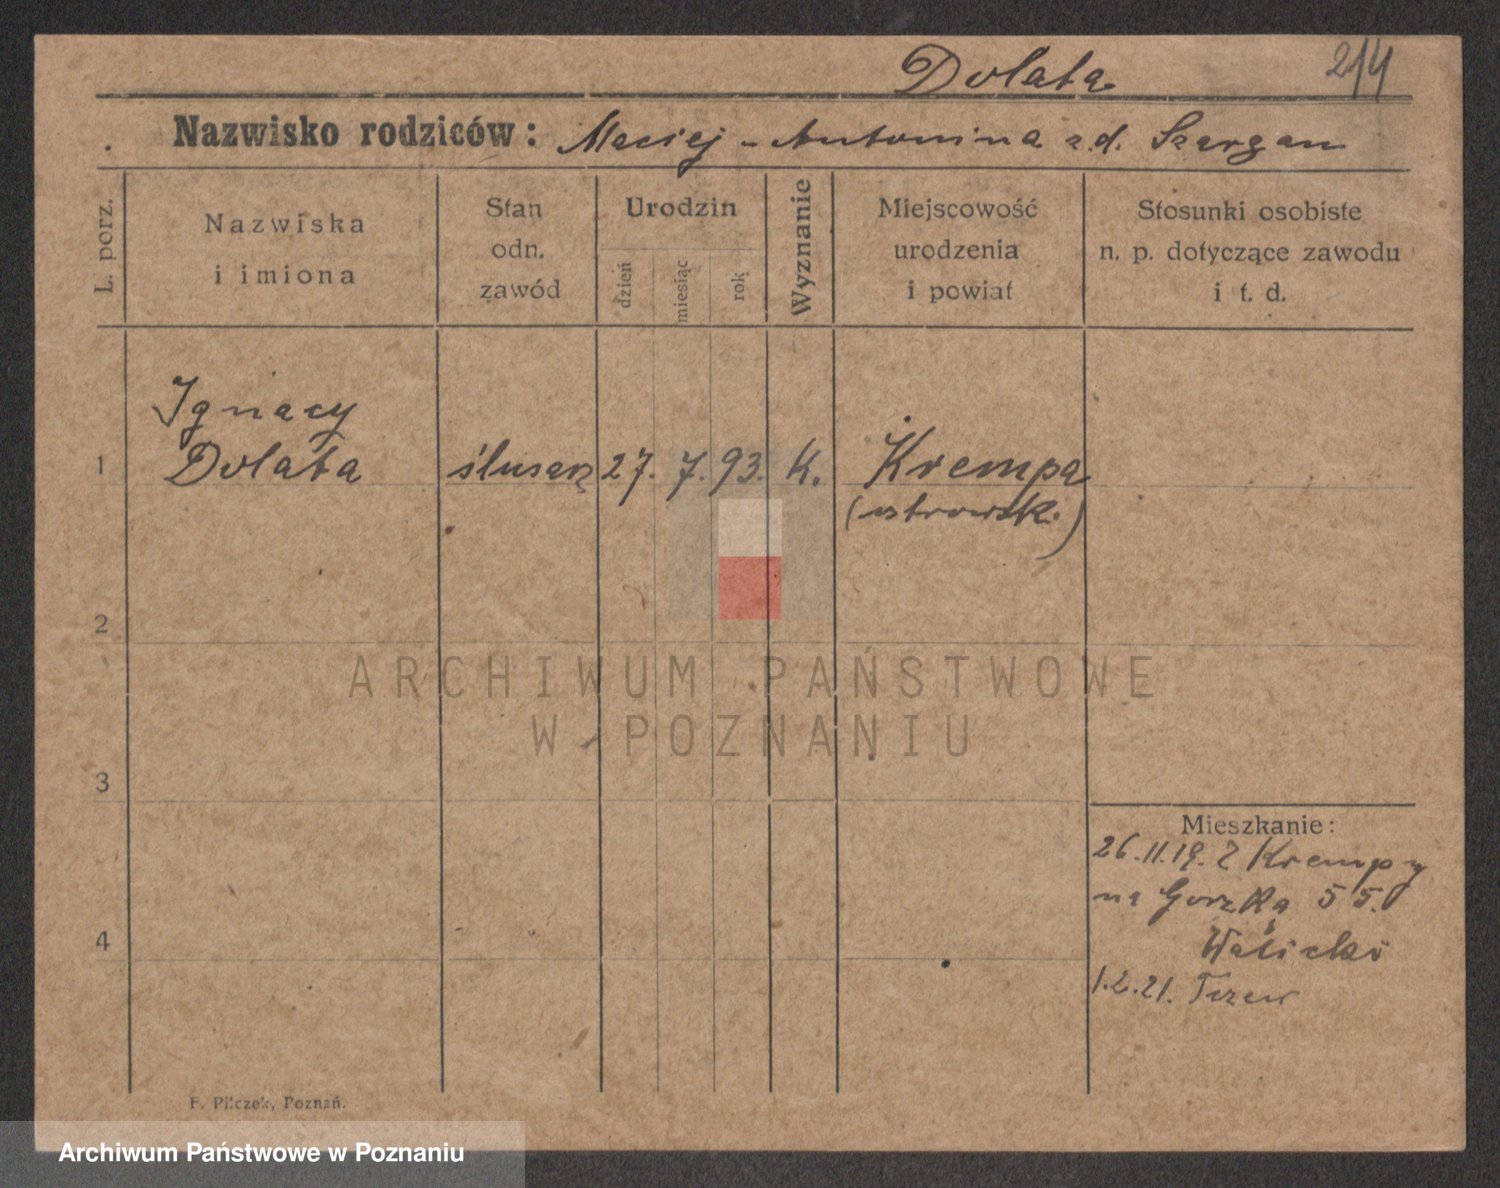 Dolata
214
Nazwisko rodziców: Maciej - Antonina z.d. Szargan
L. porz.
Nazwiska
i imiona
Stan
odn.
zawód
Urodzin
dzień
miesiąc
rok
Wyznanie
Miejscowość
urodzenia
i powiat
Stosunki osobiste
n. p. dotyczące zawodu
i t. d.
1
Ignacy
Dolata
ślusarz
27.
7.
93.
K.
Krempa
(ostrowsk.)
2
ARCHIWUM PAŃSTWOWE
W POZNANIU
3
4
Mieszkanie:
26.11.19. Z Krempy
na Gorzką 55.
1.2.21. Tczew
F. Pilczek, Poznań.
Archiwum Państwowe w Poznaniu